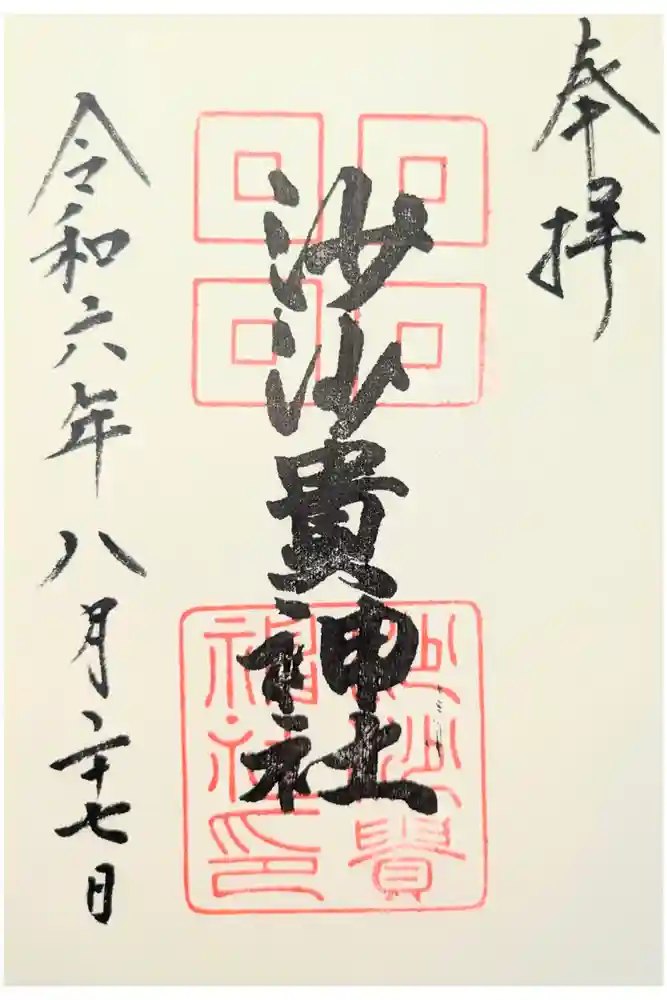 奉拝
沙沙貴神社
沙沙貴神社印
令和六年八月二十七日